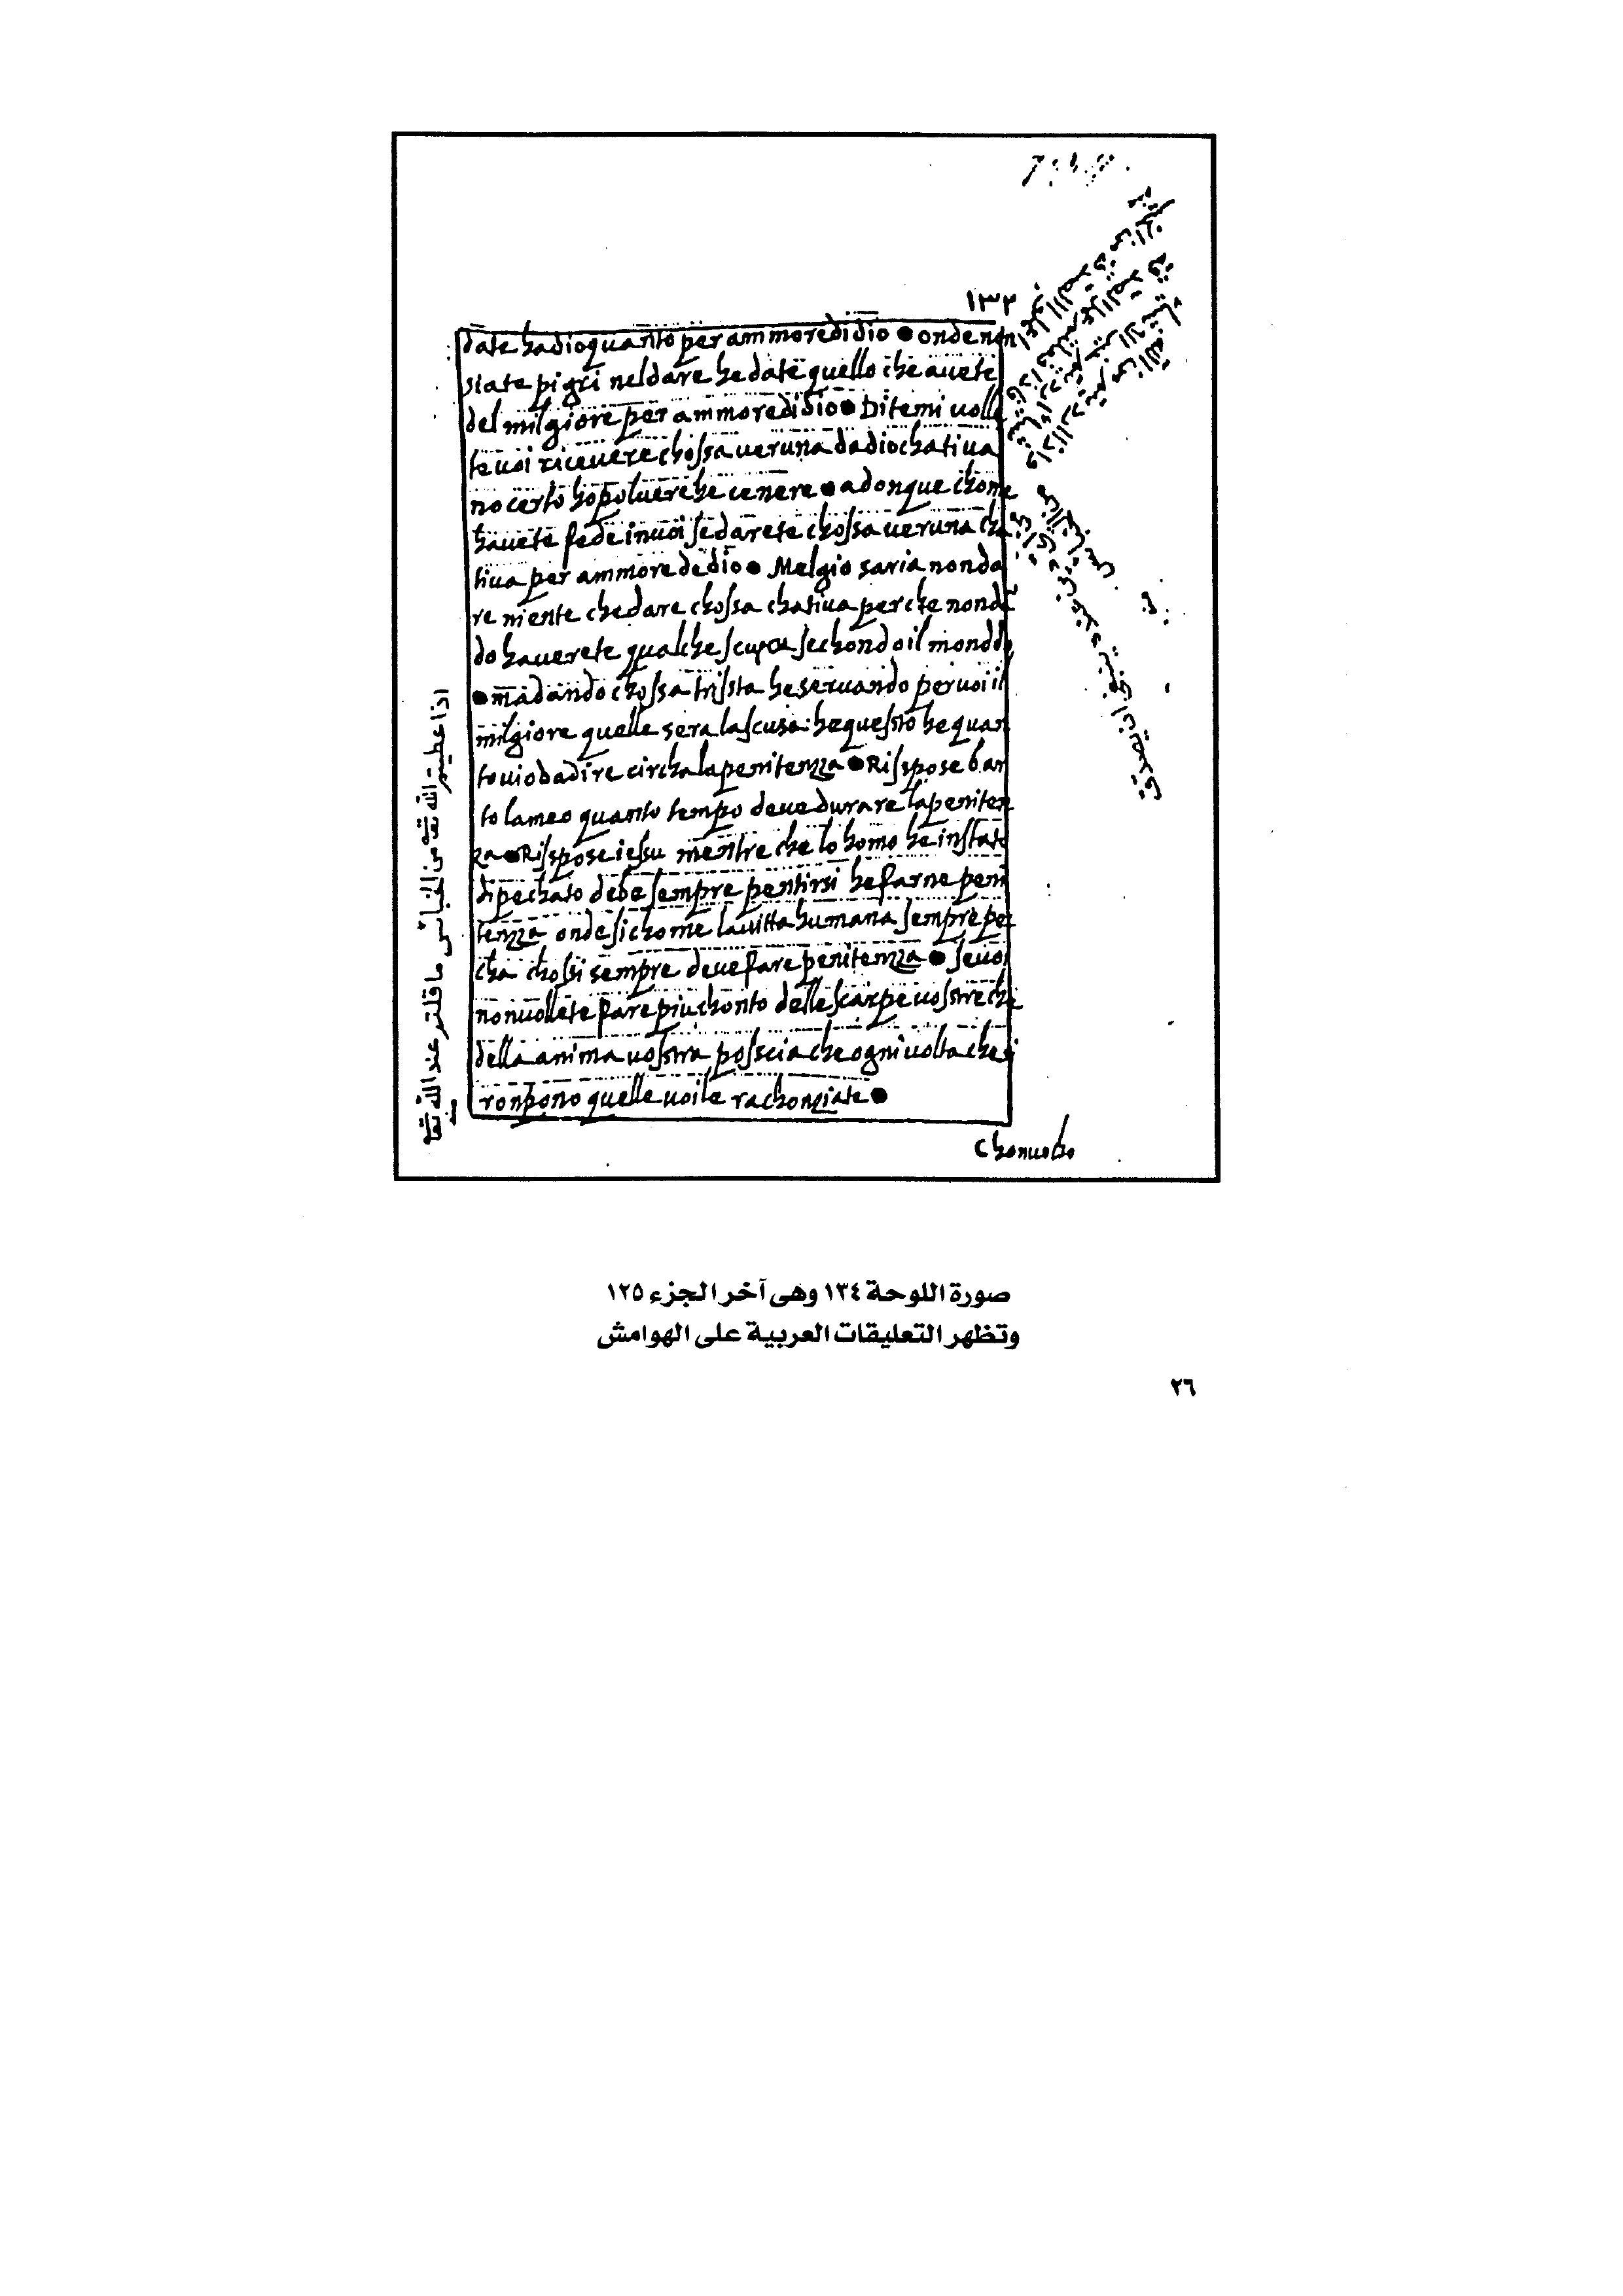 ١٣٢
date ha dio quanto per ammore di dio ● onde non
siate pigri nel dare he date quello che avete
del milgiore per ammore di dio ● Ditemi uolle
te uoi riceuere chossa ueruna da dio chatiua
no certo ho poluere he cenere ● adonque chome
hauete fede in uoi se darete chossa ueruna cha
tiua per ammore de dio ● Melgio saria non da
re niente che dare chossa chatiua perche non dā
do hauerete qualche scussa sechondo il monddo
● ma dando chossa trissta he seruando per uoi il
milgiore quelle sera la scusa: he questo he quan
to uio da dire circha la penitenza ● Risspose bar
tolameo quanto tempo deue durare la peniten
za ● Risspose iessu mentre che lo homo he in stato
di pechato debe sempre pentirsi he farne peni
tenza onde si chome la uitta humana sempre pe
cha chossi sempre deue fare penitenza ● se uoi
non uollete fare piu chonto delle scarpe uosstre che
della anima uosstra posscia che ogni uolta che si
ronpono quelle uoi le rachonziate ●
chonuoho
اذا عطيتم الله تعه من الخبائس ما قلتم عند الله تعه
صورة اللوحة ١٣٤ وهى آخر الجزء ١٢٥
وتظهر التعليقات العربية على الهوامش
٢٦